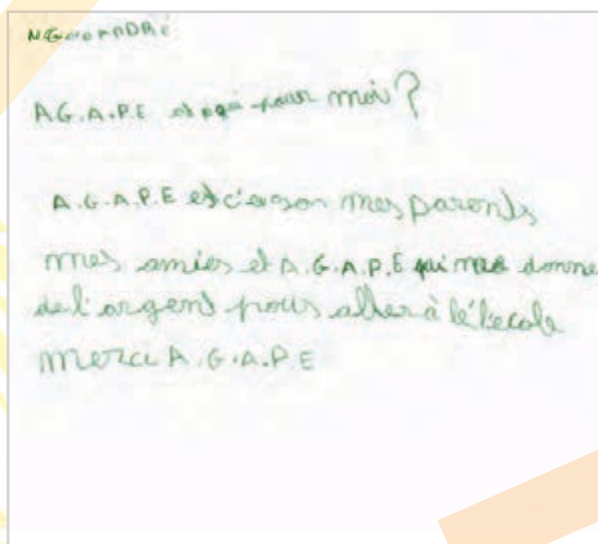 ANDRÉ
A.G.A.P.E et qui pour moi ?
A.G.A.P.E et mes parents
mes amies et A.G.A.P.E qui me donne
de l'argent pour aller à lé'lecole
merci A.G.A.P.E